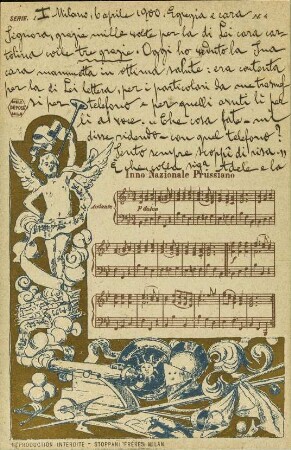 SERIE. I Milano, 6 aprile 1900. Egregia e cara
Signora, grazie mille volte per la di Lei cara car
tolina come tre grazie. Oggi ho veduto la Sua
cara mammetta in ottima salute: era contenta
per la di Lei lettera, per i particolari da me trasmes
si per telefono e per quelli avuti li per
lì al voce. "Che cosa fate - mi
disse ridendo - con quel telefono?
Sento sempre scoppi di risa."
E la sig.a Adele e la
Inno Nazionale Prussiano
Andante
P dolce
REPRODUCTION INTERDITE - STOPPANI FRÈRES MILAN